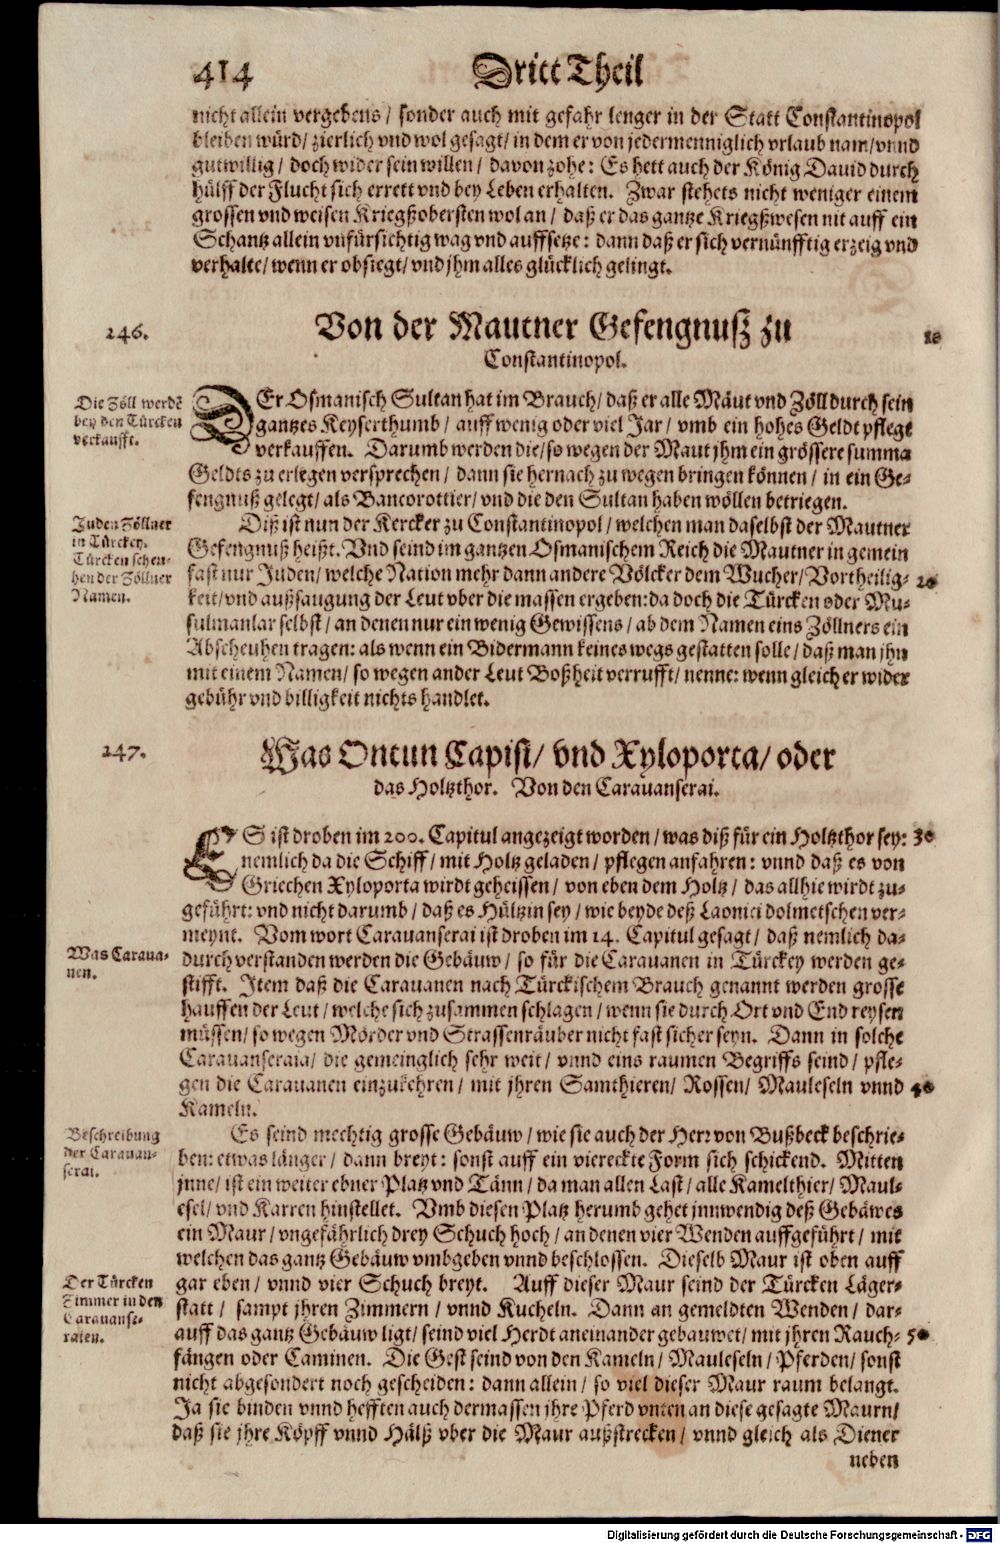 414
Dritt Theil
nicht allein vergebens / sonder auch mit gefahr lenger in der Statt Constantinopol
bleiben würd / zierlich vnd wol gesagt / in dem er von jedermenniglich vrlaub nam / vnnd
gutwillig / doch wider sein willen / davon zohe: Es hett auch der König Dauid durch
hülff der Flucht sich errett vnd bey Leben erhalten. Zwar stehets nicht weniger einem
grossen vnd weisen Kriegßobersten wol an / daß er das gantze Kriegßwesen nit auff ein
Schantz allein vnfürsichtig wag vnd auffsetze: dann daß er sich vernünfftig erzeig vnd
verhalte / wenn er obsiegt / vnd jhm alles glücklich gelingt.
246.
Von der Mautner Gefengnuß zu
10
Constantinopol.
Die Zöll werdē
bey den Türcken
verkaufft.
DEr Osmanisch Sultan hat im Brauch / daß er alle Mäut vnd Zöll durch sein
gantzes Keyserthumb / auff wenig oder viel Jar / vmb ein hohes Geldt pflegt
verkauffen. Darumb werden die / so wegen der Maut jhm ein grössere summa
Geldts zu erlegen versprechen / dann sie hernach zu wegen bringen können / in ein Ge-
fengnuß gelegt / als Bancorottier / vnd die den Sultan haben wöllen betriegen.
Juden Zöllner
in Türckey.
Türcken scheu-
hen der Zöllner
Namen.
Diß ist nun der Kercker zu Constantinopol / welchen man daselbst der Mautner
Gefengnuß heißt. Vnd seind im gantzen Osmanischem Reich die Mautner in gemein
fast nur Juden / welche Nation mehr dann andere Völcker dem Wucher / Vortheilig- 20
keit / vnd außsaugung der Leut vber die massen ergeben: da doch die Türcken oder Mu-
sulmanlar selbst / an denen nur ein wenig Gewissens / ab dem Namen eins Zöllners ein
Abscheuhen tragen: als wenn ein Bidermann keines wegs gestatten solle / daß man jhn
mit einem Namen / so wegen ander Leut Boßheit verrufft / nenne: wenn gleich er wider
gebühr vnd billigkeit nichts handlet.
247.
Was Ontun Capisi / vnd Xyloporta / oder
das Holtzthor. Von den Carauanserai.
ES ist droben im 200. Capitul angezeigt worden / was diß für ein Holtzthor sey: 30
nemlich da die Schiff / mit Holtz geladen / pflegen anfahren: vnnd daß es von
Griechen Xyloporta wirdt geheissen / von eben dem Holtz / das allhie wirdt zu-
geführt: vnd nicht darumb / daß es Hültzin sey / wie beyde deß Laonici dolmetschen ver-
meynt. Vom wort Carauanserai ist droben im 14. Capitul gesagt / daß nemlich da-
Was Caraua-
nen.
durch verstanden werden die Gebäuw / so für die Carauanen in Türckey werden ge-
stifft. Item daß die Carauanen nach Türckischem Brauch genannt werden grosse
hauffen der Leut / welche sich zusammen schlagen / wenn sie durch Ort vnd End reysen
müssen / so wegen Mörder vnd Strassenräuber nicht fast sicher seyn. Dann in solche
Carauanseraia / die gemeinglich sehr weit / vnnd eins raumen Begriffs seind / pfle-
gen die Carauanen einzukehren / mit jhren Samthieren / Rossen / Mauleseln vnnd 40
Kameln.
Beschreibung
der Carauan-
serai.
Es seind mechtig grosse Gebäuw / wie sie auch der Herr von Bußbeck beschrie-
ben: etwas länger / dann breyt: sonst auff ein viereckte Form sich schickend. Mitten
jnne / ist ein weiter ebner Platz vnd Tänn / da man allen Last / alle Kamelthier / Maul-
esel / vnd Karren hinstellet. Vmb diesen Platz herumb gehet jnnwendig deß Gebäwes
ein Maur / vngefährlich drey Schuch hoch / an denen vier Wenden auffgeführt / mit
welchen das gantz Gebäuw vmbgeben vnnd beschlossen. Dieselb Maur ist oben auff
Der Türcken
Zimmer in den
Carauanse-
raien.
gar eben / vnnd vier Schuch breyt. Auff dieser Maur seind der Türcken Läger-
statt / sampt jhren Zimmern / vnnd Kucheln. Dann an gemeldten Wenden / dar-
auff das gantz Gebäuw ligt / seind viel Herdt aneinander gebauwet / mit jhren Rauch- 50
fängen oder Caminen. Die Gest seind von den Kameln / Mauleseln / Pferden / sonst
nicht abgesondert noch gescheiden: dann allein / so viel dieser Maur raum belangt.
Ja sie binden vnnd hefften auch dermassen jhre Pferd vnten an diese gesagte Maurn /
daß sie jhre Köpff vnnd Hälß vber die Maur außstrecken / vnnd gleich als Diener
neben
Digitalisierung gefördert durch die Deutsche Forschungsgemeinschaft - DFG